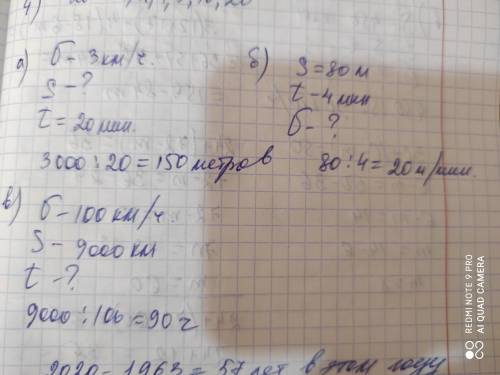 а) υ – 3 км/ч.
S – ?
t = 20 мин.
3000 : 20 = 150 метров
б)
S = 80 м
t – 4 мин
υ – ?
80 : 4 = 20 м/мин.
в) υ – 100 км/ч
S – 9000 км
t – ?
9000 : 100 = 90 ч
2020 – 1963 = 57 лет в этом году
REDMI NOTE 9 PRO
AI QUAD CAMERA